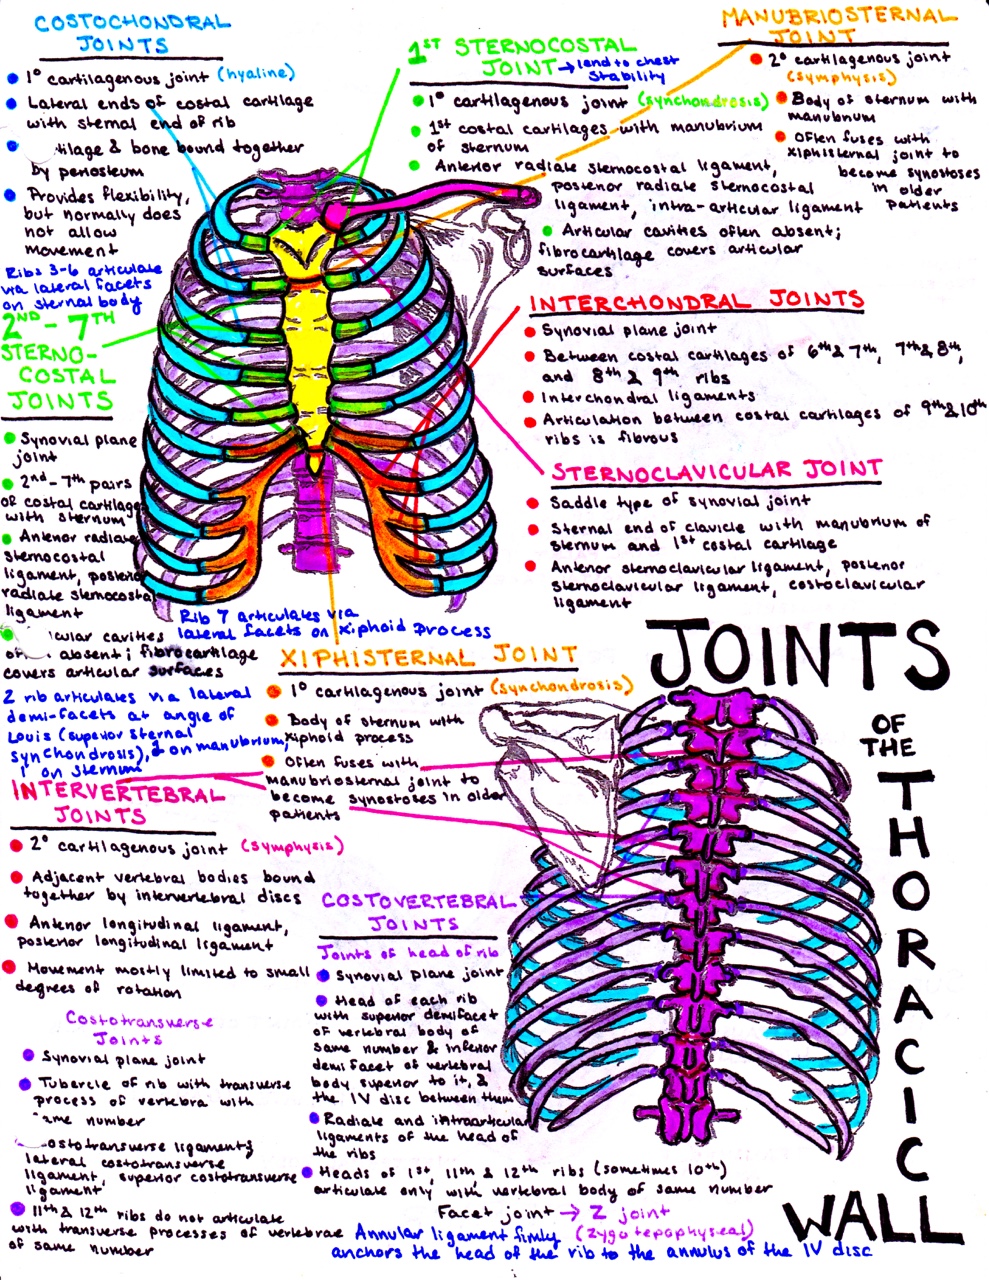 COSTOCHONDRAL
JOINTS
1° cartilagenous joint (hyaline)
Lateral ends of costal cartilage
with sternal end of rib
tilage & bone bound together
by periosteum
Provides flexibility,
but normally does
not allow
movement
Ribs 3-6 articulate
via lateral facets
on sternal body
2ND - 7TH
STERNO-
COSTAL
JOINTS
Synovial plane
joint
2nd - 7th pairs
of costal cartilage
with sternum
Anterior radiate
sternocostal
ligament, posterior
radiate sternocostal
ligament
cular cavities
absent; fibrocartilage
covers articular surfaces
2 rib articulates via lateral
demi-facets at angle of
Louis (superior sternal
synchondrosis), 1 on manubrium,
1 on sternum
1ST STERNOCOSTAL
JOINT → lend to chest
stability
1° cartilagenous joint (synchondrosis)
1st costal cartilages with manubrium
of sternum
Anterior radiate sternocostal ligament,
posterior radiate sternocostal
ligament, intra-articular ligament
Articular cavities often absent;
fibrocartilage covers articular
surfaces
MANUBRIOSTERNAL
JOINT
2° cartilagenous joint
(symphysis)
Body of sternum with
manubrium
Often fuses with
xiphisternal joint to
become synostoses
in older
patients
INTERCHONDRAL JOINTS
Synovial plane joint
Between costal cartilages of 6th & 7th, 7th & 8th,
and 8th & 9th ribs
Interchondral ligaments
Articulation between costal cartilages of 9th & 10th
ribs is fibrous
STERNOCLAVICULAR JOINT
Saddle type of synovial joint
Sternal end of clavicle with manubrium of
sternum and 1st costal cartilage
Anterior sternoclavicular ligament, posterior
sternoclavicular ligament, costoclavicular
ligament
Rib 7 articulates via
lateral facets on xiphoid process
XIPHISTERNAL JOINT
1° cartilagenous joint (synchondrosis)
Body of sternum with
xiphoid process
Often fuses with
manubriosternal joint to
become synostoses in older
patients
JOINTS
OF
THE
THORACIC
WALL
INTERVERTEBRAL
JOINTS
2° cartilagenous joint (symphysis)
Adjacent vertebral bodies bound
together by intervertebral discs
Anterior longitudinal ligament,
posterior longitudinal ligament
Movement mostly limited to small
degrees of rotation
Costotransverse
Joints
Synovial plane joint
Tubercle of rib with transverse
process of vertebra with
ame number
ostotransverse ligament,
lateral costotransverse
ligament, superior costotransverse
ligament
11th & 12th ribs do not articulate
with transverse processes of vertebrae
of same number
COSTOVERTEBRAL
JOINTS
Joints of head of rib
Synovial plane joint
Head of each rib
with superior demifacet
of vertebral body of
same number & inferior
demi facet of vertebral
body superior to it, &
the IV disc between them
Radiate and intraarticular
ligaments of the head of
the ribs
Heads of 1st, 11th, & 12th ribs (sometimes 10th)
articulate only with vertebral body of same number
Facet joint → Z joint
(zygotepophyseal)
Annular ligament firmly
anchors the head of the rib to the annulus of the IV disc